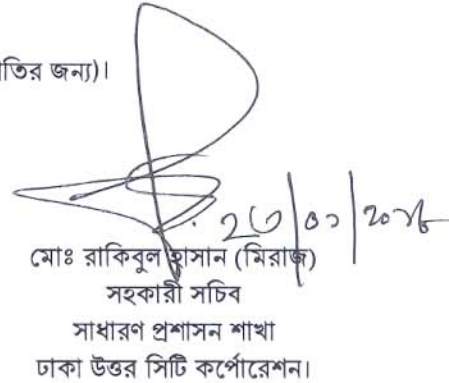 তির জন্য)।
মোঃ রাকিবুল হাসান (মিরাজ)
সহকারী সচিব
সাধারণ প্রশাসন শাখা
ঢাকা উত্তর সিটি কর্পোরেশন।